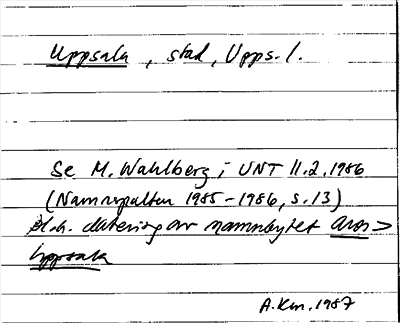 Uppsala, stad, Upps. l.
Se M. Wahlberg i UNT 11.2.1986
(Namnspalten 1985-1986, s. 13)
bl.a. datering av namnbytet Aros >
Uppsala
A.Km. 1987